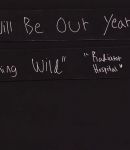 Will Be Our Year
ing Wild" "Radiator
Hospital"